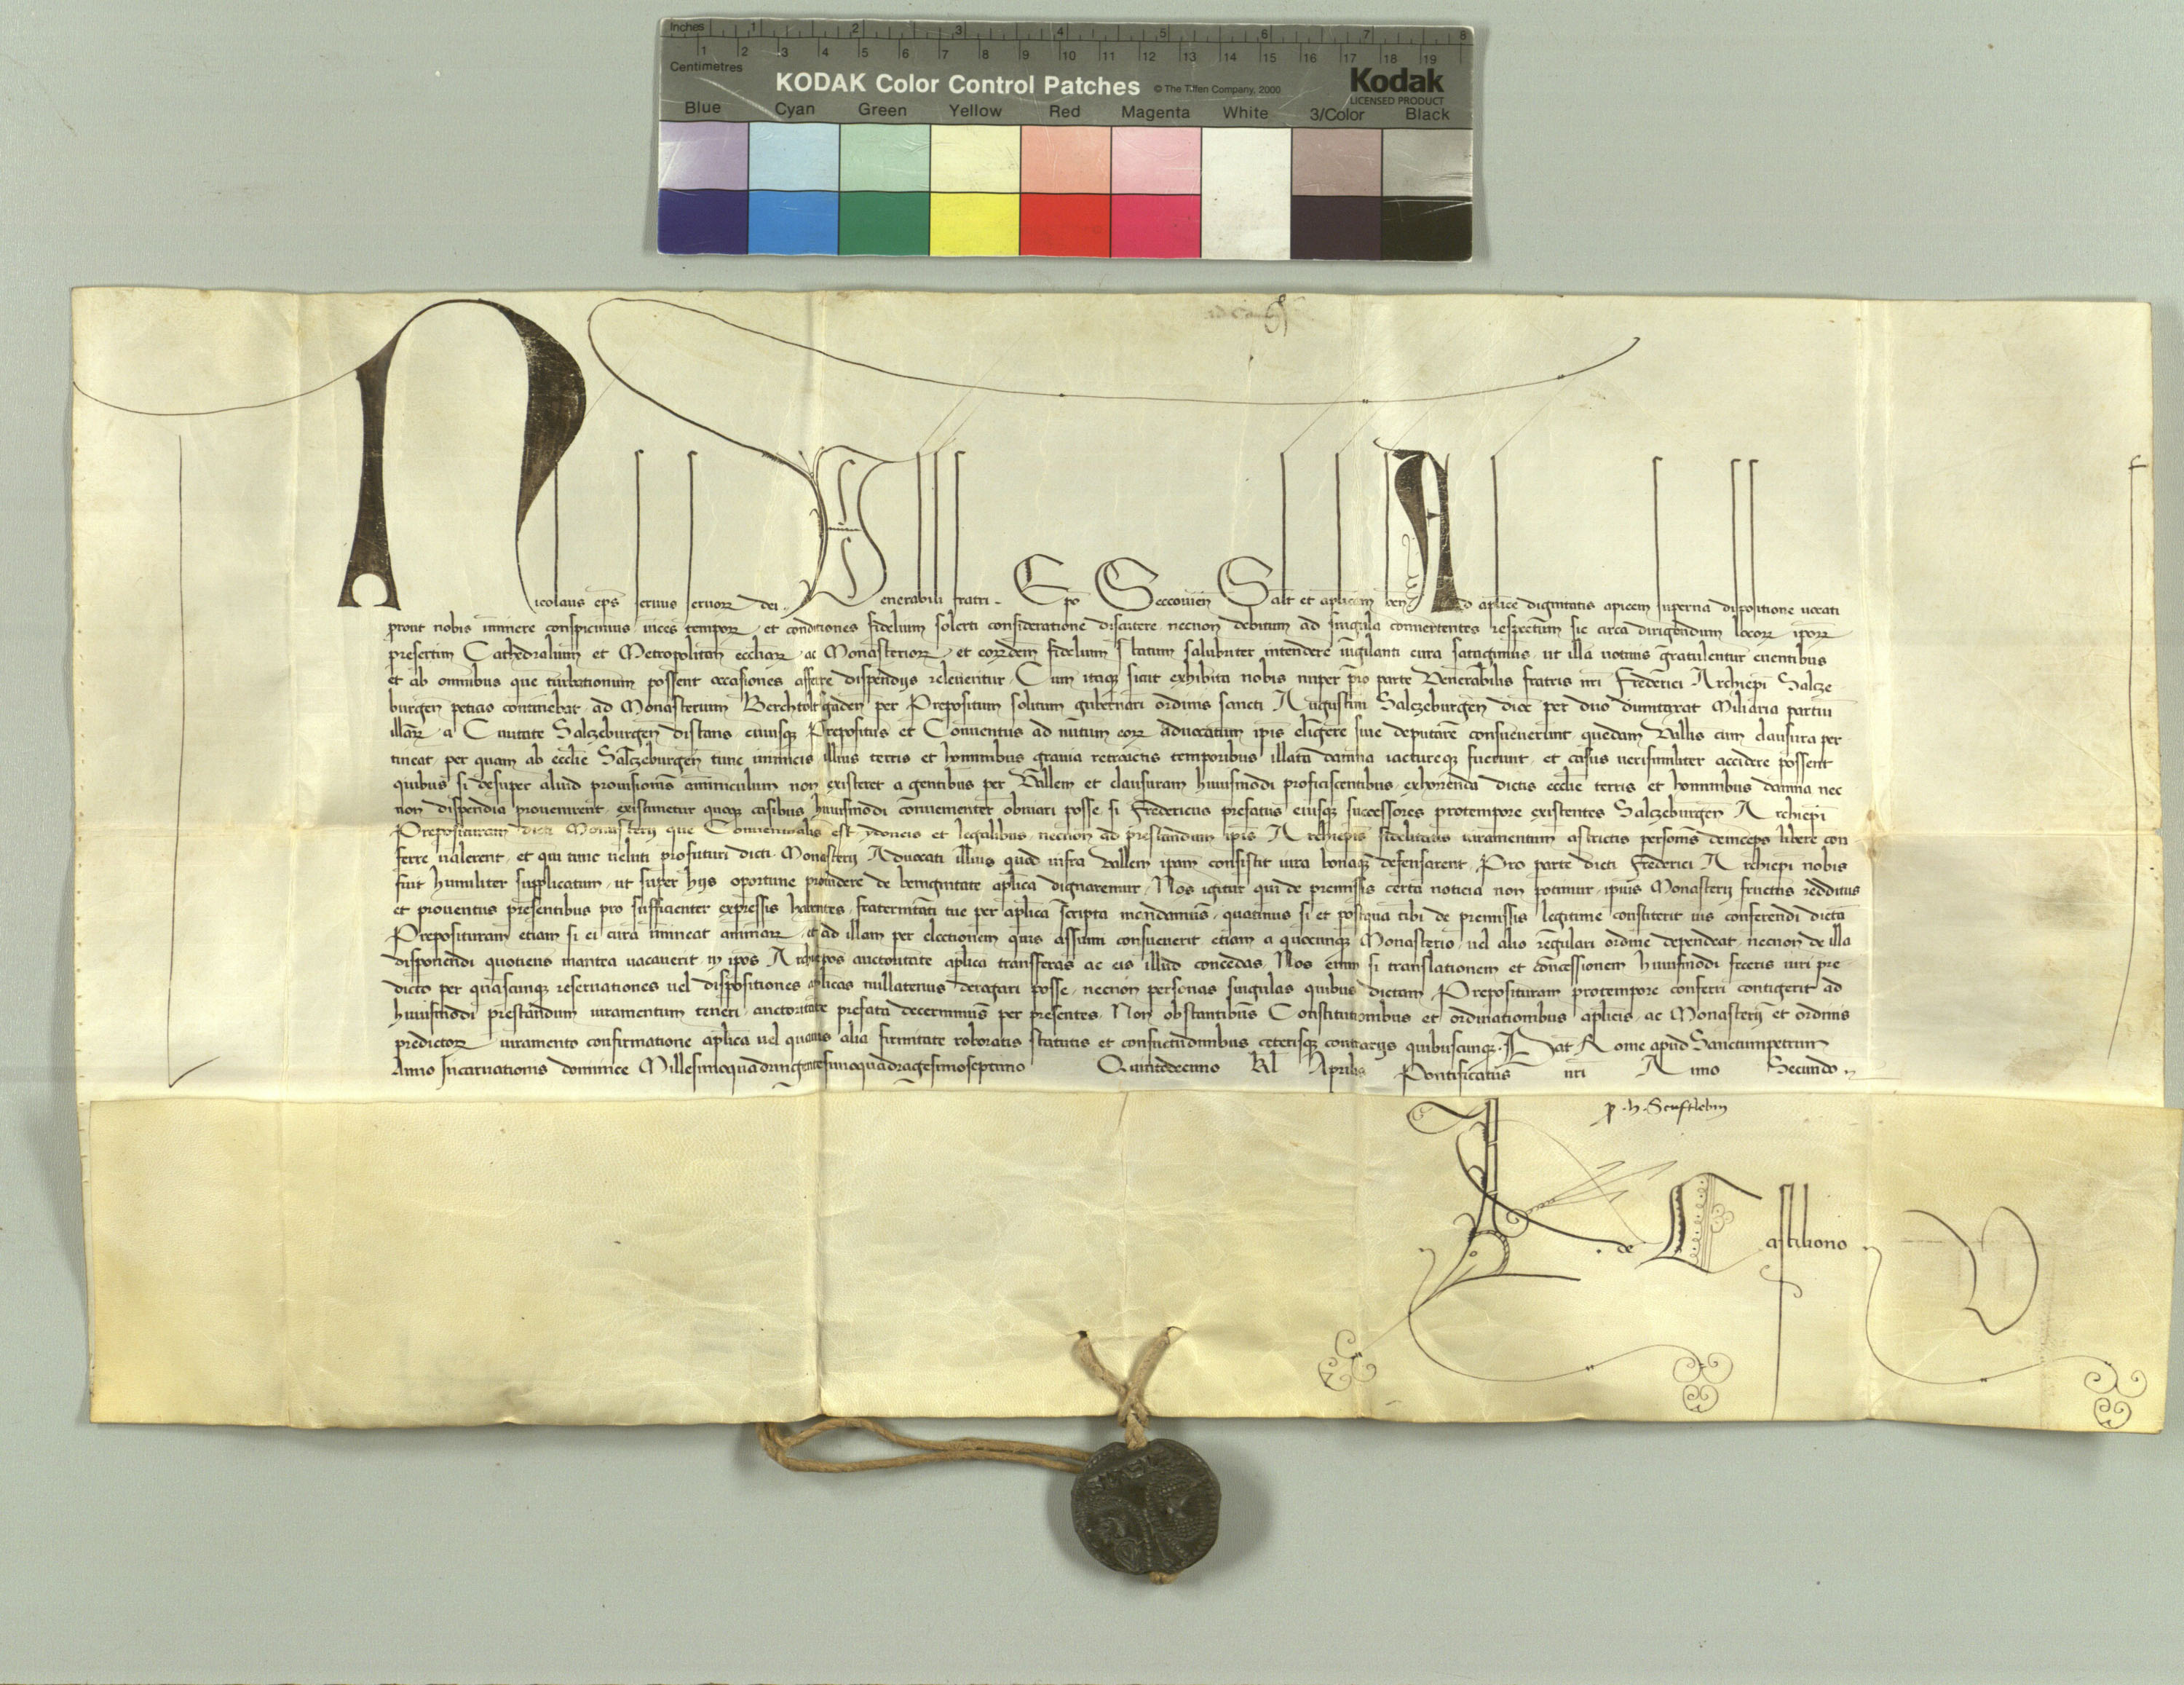 Inches 1 2 3 4 5 6 7 8
1 2 3 4 5 6 7 8 9 10 11 12 13 14 15 16 17 18 19
Centimetres
KODAK Color Control Patches © The Tiffen Company, 2000 Kodak
LICENSED PRODUCT
Blue Cyan Green Yellow Red Magenta White 3/Color Black
Nicolaus eps seruus seruor dei Venerabili fratri Epo Seccouien Salt et aplicam ben Ad aplice dignitatis apicem superna dispositione uocati
prout nobis iminere conspicimus uices tempor et conditiones fidelium solerti consideratione discutere necnon debitum ad singula conuertentes respectum sic circa dirigendum locor ipor
presertim Cathedralium et Metropolitan eccliar ac Monasterior et eorundem fidelium statum salubriter intendere uigilanti cura satagimus ut illa uotiuis gratulentur euentibus
et ab omnibus que turbationum possent occasiones afferre dispendijs releuentur Cum itaq sicut exhibita nobis nuper pro parte Venerabilis fratris nri Frederici Archiepi Salcze
burgen peticio continebat ad Monasterium Berchtolsgaden per Prepositum solitum gubernari ordinis sancti Augustini Salczeburgen dioc per duo dumtaxat Miliaria partiu
illar a Ciuitate Salczeburgen distans cuiusq Prepositus et Conuentus ad nutum eor aduocatum ipis eligere siue deputare consueuerunt quedam Vallis cum clausura per
tineat per quam ab ecclie Salczeburgen tunc inimicis illius terris et hominibus grauia retroactis temporibus illata damna iactureq fuerunt et casus uerisimiliter accidere possent
quibus si desuper aliud prouisionis amminiculum non existeret a gentibus per Vallem et clausuram huiusmodi proficiscentibus exhorrenda dictis ecclie terris et hominibus damna nec
non dispendia prouenirent existimetur quoq casibus huiusmodi conuenienter obuiari posse si Fredericus prefatus eiusq successores protempore existentes Salczeburgen Archiepi
Preposituram dicti Monasterij que Conuentualis est ydoneis et legalibus necnon ad prestandum ipis Archiepis fidelitatis iuramentum astrictis personis deinceps libere con
ferre ualerent et qui tunc ueluti profuturi dicti Monasterij Aduocati illius quod infra Vallem ipam consistit iura bonaq defensarent Pro parte dicti Frederici Archiepi nobis
fuit humiliter supplicatum ut super hijs oportune prouidere de benignitate aplica dignaremur Nos igitur qui de premissis certa noticia non potimur ipius Monasterij fructus redditus
et prouentus presentibus pro sufficienter expressis habentes fraternitati tue per aplica scripta mandamus quatinus si et postqua tibi de premissis legitime constiterit ius conferendi dicta
Preposituram etiam si ei cura imineat animar et ad illam per electionem quis assumi consueuerit etiam a quocunq Monasterio uel alio regulari ordine dependeat necnon de illa
disponendi quotiens inantea uacauerit in ipos Archiepos auctoritate aplica transferas ac eis illud concedas Nos enim si translationem et concessionem huiusmodi feceris iuri pre
dicto per quascunq reseruationes uel dispositiones aplicas nullatenus derogari posse necnon personas singulas quibus dictam Preposituram protempore conferri contigerit ad
huiusmodi prestandum iuramentum teneri auctoritate prefata decernimus per presentes Non obstantibus Constitutionibus et ordinationibus aplicis ac Monasterij et ordinis
predictor iuramento confirmatione aplica uel quauis alia firmitate roboratis statutis et consuetudinibus ceterisq contrarijs quibuscunq Dat Rome apud Sanctumpetrum
Anno Incarnationis dominice Millesimoquadringentesimoquadragesimoseptimo Quintodecimo Kl Aprilis Pontificatus nri Anno Secundo
p h Senftleben
de Castiliono